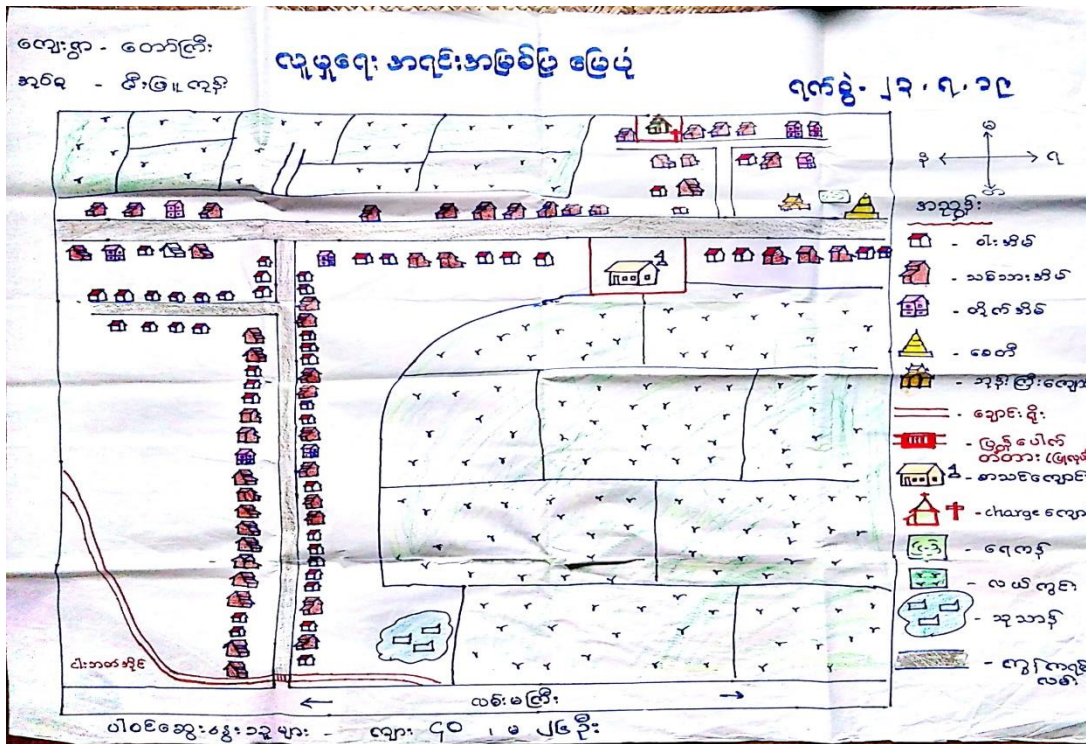 ကျေးရွာ - တော်ကြီး
အုပ်စု - မီးဖြူကုန်း
လူမှုရေး အရင်းအမြစ်ပြ မြေပုံ
ရက်စွဲ - ၂၃.၇.၁၉
အညွှန်း
- ဝါးအိမ်
- သစ်သားအိမ်
- တိုက်အိမ်
- စေတီ
- ဘုန်းကြီးကျောင်း
- ချောင်းရိုး
- ပြွန်ပေါက်
တံတား
- စာသင်ကျောင်း
- charge ကျော
- ရေကန်
- လယ်ကွင်း
- သုသာန်
- ကွန်ကရစ်
လမ်း
လမ်းမကြီး
ပါဝင်ဆွေးနွေးသူများ - ကျား ၄၀ ၊ မ ၂၆ ဦး